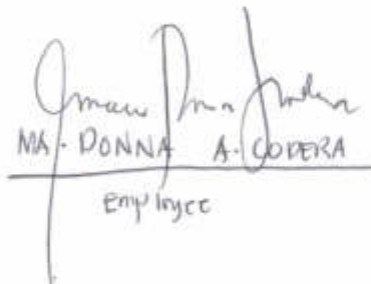 MA. DONNA A. CODERA
employee